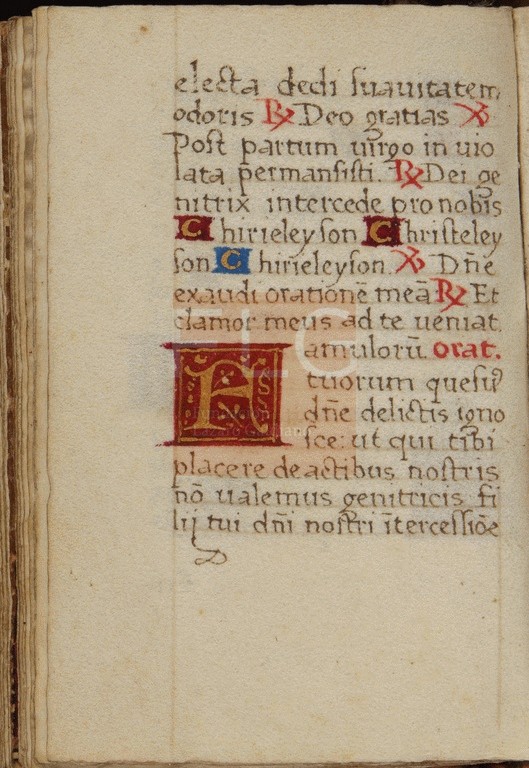 electa dedi suauitatem
odoris ℟ Deo gratias ℣
Post partum uirgo in uio
lata permansisti. ℟ Dei ge
nitrix intercede pro nobis
Chirieleyson Christeley
son Chirieleyson. ℣ Dñe
exaudi orationē meā ℟ Et
clamor meus ad te ueniat.
Famulorū orat.
tuorum quesuꝰ
dñe delictis igno
sce: ut qui tibi
placere de actibus nostris
nō ualemus genitricis fi
lij tui dñi nostri ītercessiōe
FLG